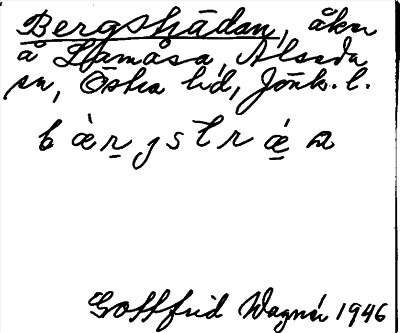 Bergsträdan, åker
å Slamåsa, Alseda
sn, Östra hd, Jönk. l.
bæ̀rgstrǽa
Gottfrid Wagnér 1946